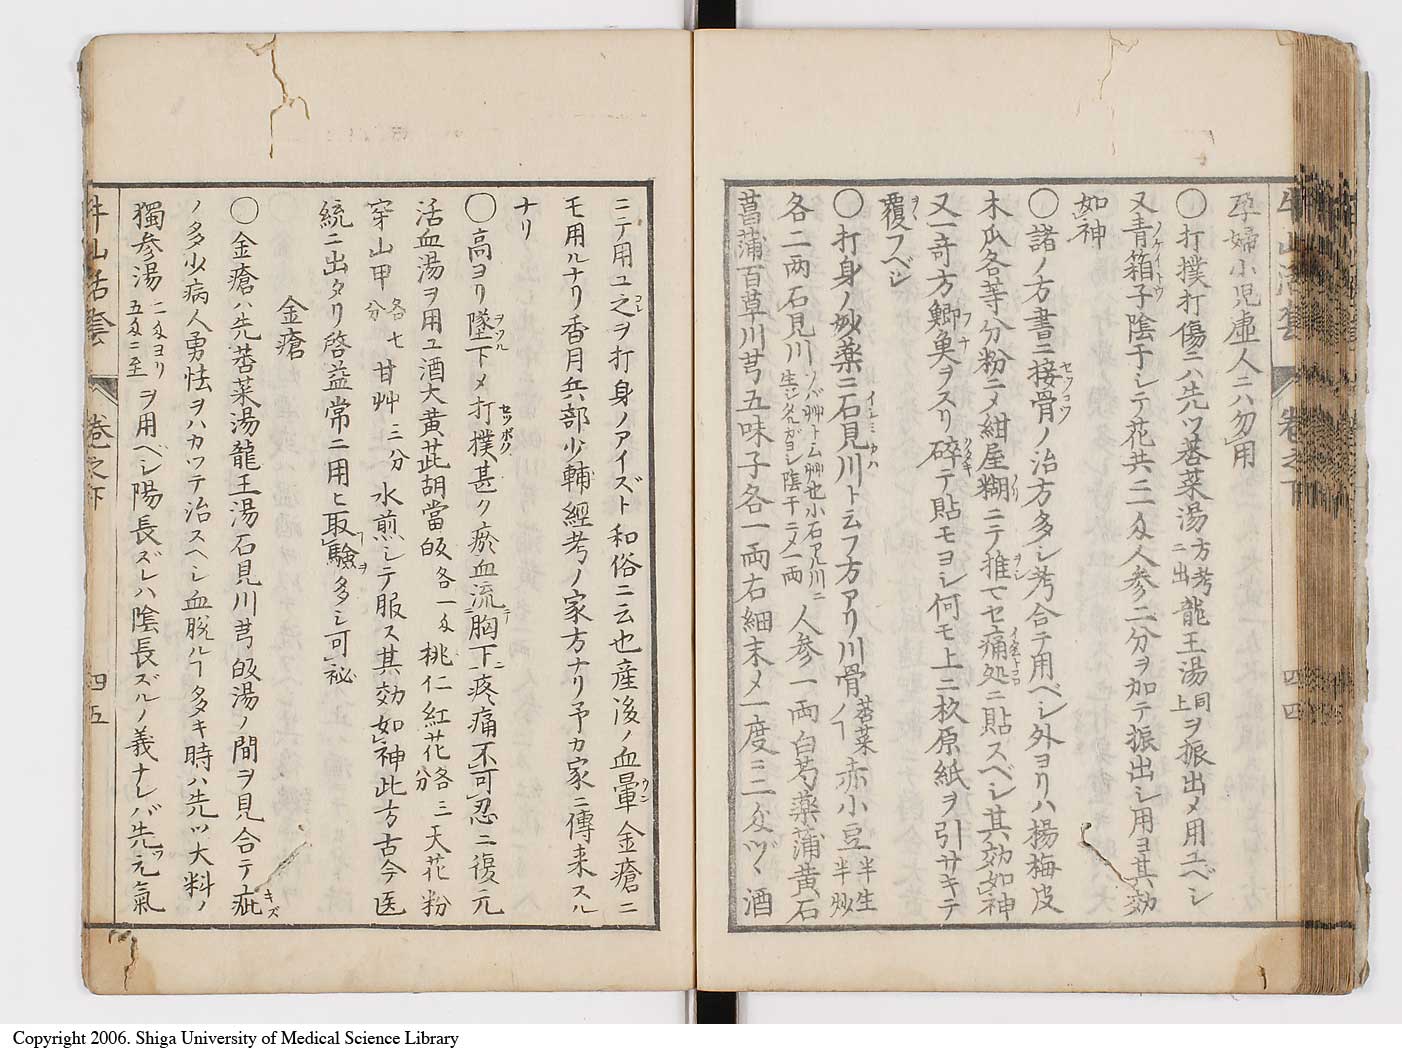 牛山活套 卷之下 四四
孕婦小児虚人ニハ勿用
〇打撲打傷ニハ先ツ萫菜湯方考ニ出龍王湯同上ヲ振出メ用ユベシ
又青箱子ノゲイトウ陰干シテ花共ニ一匁人参二分ヲ加テ振出シ用ヨ其効
如神
〇諸ノ方書ニ接骨セツコツノ治方多シ考合テ用ベシ外ヨリハ楊梅皮
木瓜各等分粉ニメ紺屋糊ノリニテ推ヲシマセ痛処イタムトコロニ貼スベシ其効如神
又一奇方鯽魚フナヲスリ碎クダキテ貼モヨシ何モ上ニ杦原紙ヲ引サキテ
覆ヲヽフベシ
〇打身ノ妙薬ニ石見川イシミカハト云フ方アリ川骨ノ亅萫菜赤小豆半生半炒
各二両石見川ソバ艸十ム艸也小石アル川ニ生シタルガヨシ陰干ニメ一両人参一両白芍薬蒲黄石
菖蒲百草川芎五味子各一両右細末メ一度ニ二匁ヅヽ酒
ニテ用ユ之コレヲ打身ノアイズト和俗ニ云也産後ノ血暈ウン金瘡ニ
モ用ルナリ香月兵部少輔經考ノ家方ナリ予カ家ニ傳来スル
ナリ
〇高ヨリ墜ヲツル下メ打撲セツボク甚ク瘀血流テ胸下ニ疼痛不可忍ニ復元
活血湯ヲ用ユ酒大黄茈胡當皈各一匁桃仁紅花各三分天花粉
穿山甲各七分甘艸三分水煎シテ服ス其効如神此方古今医
統ニ出タリ啓益常ニ用ヒ取験ヲ多シ可祕
金瘡
〇金瘡ハ先萫菜湯龍王湯石見川芎皈湯ノ間ヲ見合テ疵キズ
ノ多少病人勇怯ヲハカツテ治スヘシ血脱ル亅多キ時ハ先ツ大料ノ
獨参湯二匁ヨリ五匁ニ至ヲ用ベシ陽長ズレハ陰長ズルノ義ナレバ先ツ元氣
牛山活套 卷之下 四五
Copyright 2006. Shiga University of Medical Science Library